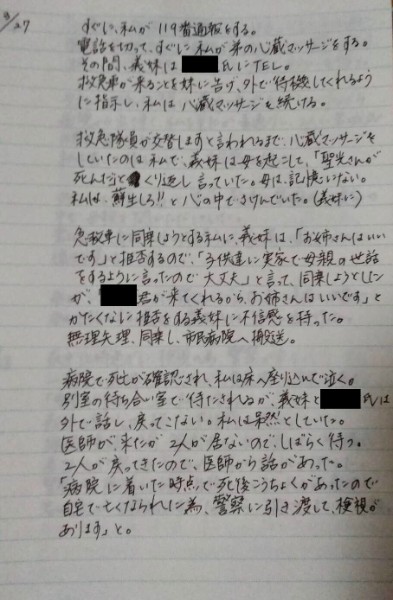 3/27
すぐに、私が119番通報をする。
電話を切って、すぐに私が弟の心臓マッサージをする。
その間、義妹は 氏にTEL。
救急車が来ることを妹に告げ、外で待機してくれるよう
に指示し、私は心臓マッサージを続ける。
救急隊員が交替しますと言われるまで、心臓マッサージを
していたのは私で、義妹は母を起こして、「聖光さんが
死んだ」とくり返し言っていた。母は、記憶にない。
私は、蘇生しろ!!と心の中でさけんでいた。(義妹に)
急救車に同乗しようとする私に、義妹は、「お姉さんはいい
です」と拒否するので、「子供達に実家で母親の世話
をするように言ったので大丈夫」と言って、同乗しようとした
が、 君が来てくれるから、お姉さんはいいです」と
かたくなに拒否をする義妹に不信感を持った。
無理矢理、同乗し、市民病院へ搬送。
病院で死亡が確認され、私は床へ座り込んで泣く。
別室の待ち合い室で待たされるが、義妹と 氏は
外で話し、戻ってこない。私は呆然としていた。
医師が来たが2人が居ないので、しばらく待つ。
2人が戻ってきたので、医師から話があった。
「病院に着いた時点で死後こうちょくがあったので
自宅で亡くなられた為、警察に引き渡して、検視が
あります」と。